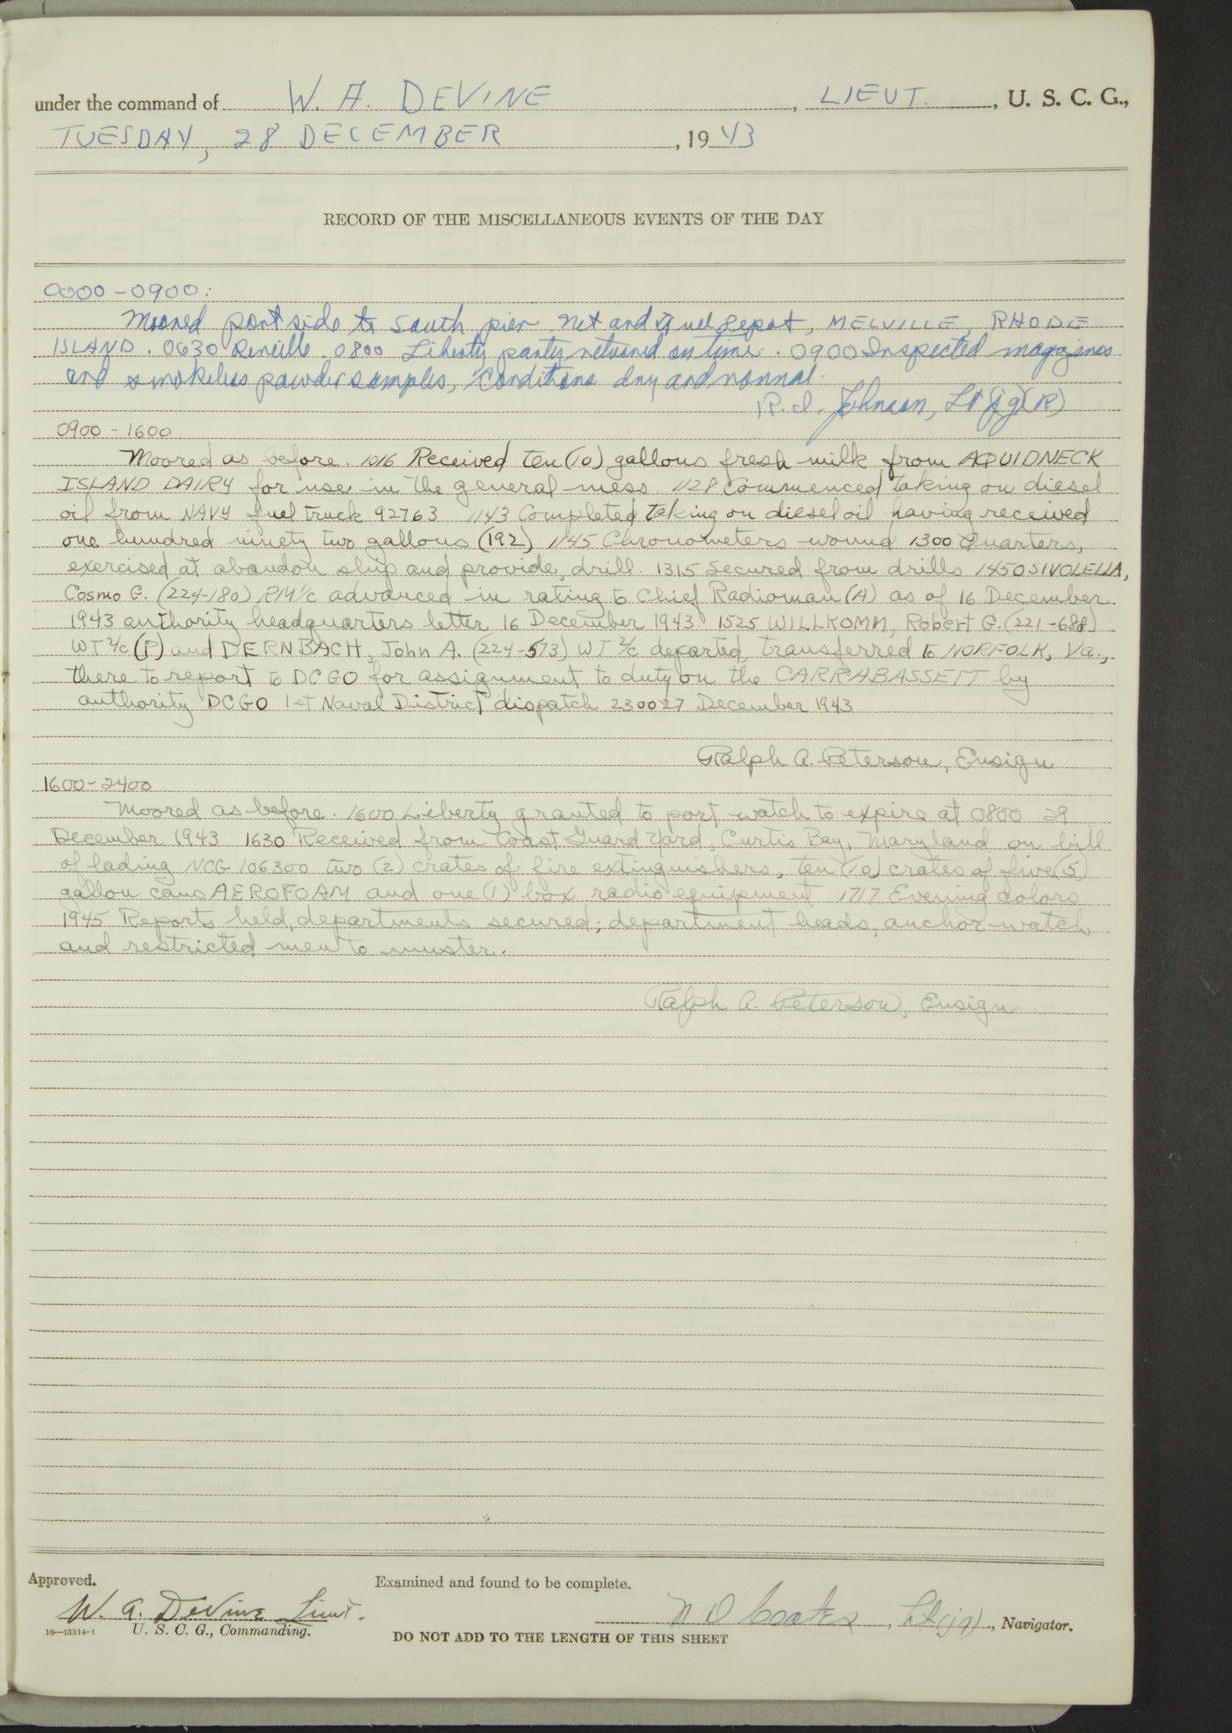 under the command of W. A. DEVINE, LIEUT., U. S. C. G.,
TUESDAY, 28 DECEMBER, 1943
RECORD OF THE MISCELLANEOUS EVENTS OF THE DAY
0000-0900:
Moored port side to South pier Net and Fuel Depot, MELVILLE, RHODE
ISLAND. 0630 Reveille. 0800 Liberty party returned on time. 0900 Inspected magazines
and smokeless powder samples, Conditions dry and normal.
R. I. Johnson, Lt (jg)(R)
0900-1600
Moored as before. 1016 Received ten (10) gallons fresh milk from AQUIDNECK
ISLAND DAIRY for use in the general mess 1128 Commenced taking on diesel
oil from NAVY fuel truck 92763 1143 Completed taking on diesel oil having received
one hundred ninety two gallons (192) 1145 Chronometers wound 1300 Quarters,
exercised at abandon ship and provide, drill. 1315 Secured from drills 1450 SIVOLELLA,
Cosmo G. (224-180) RM1/c advanced in rating to Chief Radioman (A) as of 16 December
1943 authority headquarters letter 16 December 1943 1525 WILLKOMM, Robert G. (221-688)
WT 2/c (P) and DERNBACH, John A. (224-573) WT 2/c departed, transferred to NORFOLK, Va.,
there to report to DCGO for assignment to duty on the CARRABASSETT by
authority DCGO 1st Naval District dispatch 230027 December 1943
Ralph A. Peterson, Ensign
1600-2400
Moored as before. 1600 Liberty granted to port watch to expire at 0800 29
December 1943 1630 Received from Coast Guard Yard, Curtis Bay, Maryland on bill
of lading NCG 106300 two (2) crates of fire extinguishers, ten (10) crates of five (5)
gallon cans AEROFOAM and one (1) box radio equipment 1717 Evening Colors
1945 Reports held, departments secured; department heads, anchor-watch
and restricted men to muster.
Ralph A. Peterson, Ensign
Approved. Examined and found to be complete.
W. A. DeVine Lieut. N D Coates, Lt (jg), Navigator.
16—13314-1 U. S. C. G., Commanding.
DO NOT ADD TO THE LENGTH OF THIS SHEET